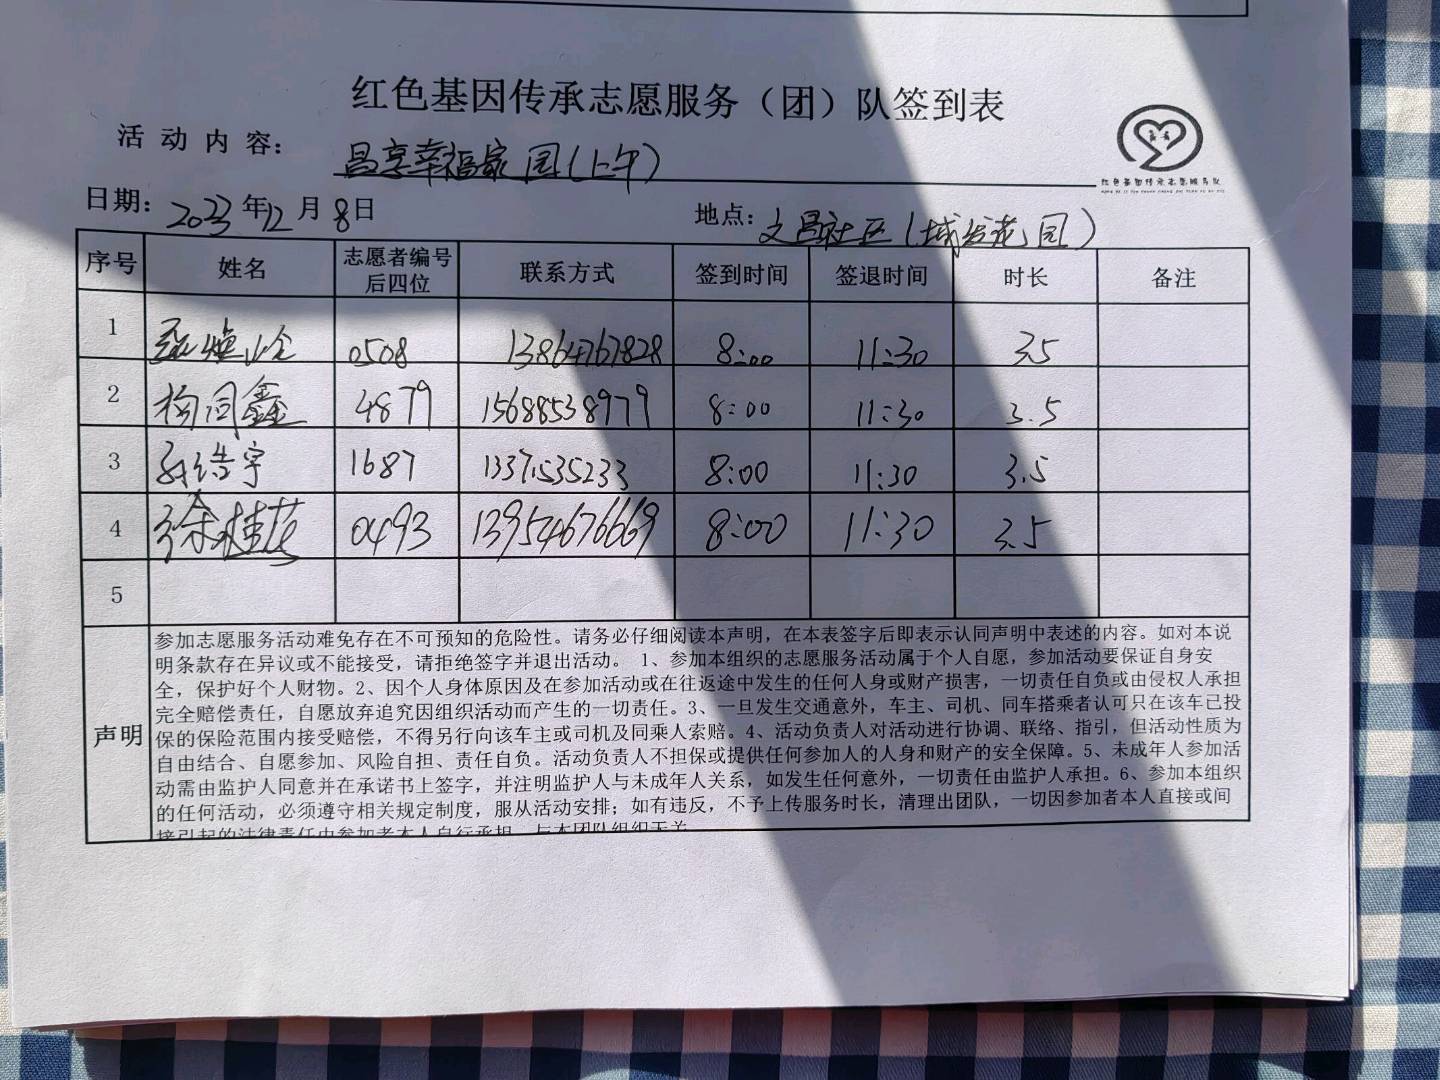 红色基因传承志愿服务（团）队签到表
活动内容：昌享幸福家园（上午）
日期：2023年12月8日 地点：文昌社区（城发花园）
序号 姓名 志愿者编号后四位 联系方式 签到时间 签退时间 时长 备注
1 0508 13864767828 8:00 11:30 3.5
2 杨同鑫 4879 15688538979 8:00 11:30 3.5
3 孙浩宇 1687 13371535233 8:00 11:30 3.5
4 徐桂花 0493 13954676669 8:00 11:30 3.5
5
声明
参加志愿服务活动难免存在不可预知的危险性。请务必仔细阅读本声明，在本表签字后即表示认同声明中表述的内容。如对本说
明条款存在异议或不能接受，请拒绝签字并退出活动。 1、参加本组织的志愿服务活动属于个人自愿，参加活动要保证自身安
全，保护好个人财物。2、因个人身体原因及在参加活动或在往返途中发生的任何人身或财产损害，一切责任自负或由侵权人承担
完全赔偿责任，自愿放弃追究因组织活动而产生的一切责任。3、一旦发生交通意外，车主、司机、同车搭乘者认可只在该车已投
保的保险范围内接受赔偿，不得另行向该车主或司机及同乘人索赔。4、活动负责人对活动进行协调、联络、指引，但活动性质为
自由结合、自愿参加、风险自担、责任自负。活动负责人不担保或提供任何参加人的人身和财产的安全保障。5、未成年人参加活
动需由监护人同意并在承诺书上签字，并注明监护人与未成年人关系，如发生任何意外，一切责任由监护人承担。6、参加本组织
的任何活动，必须遵守相关规定制度，服从活动安排；如有违反，不予上传服务时长，清理出团队，一切因参加者本人直接或间
接引起的法律责任由参加者本人自行承担，与本团队组织无关
红色基因传承志愿服务队